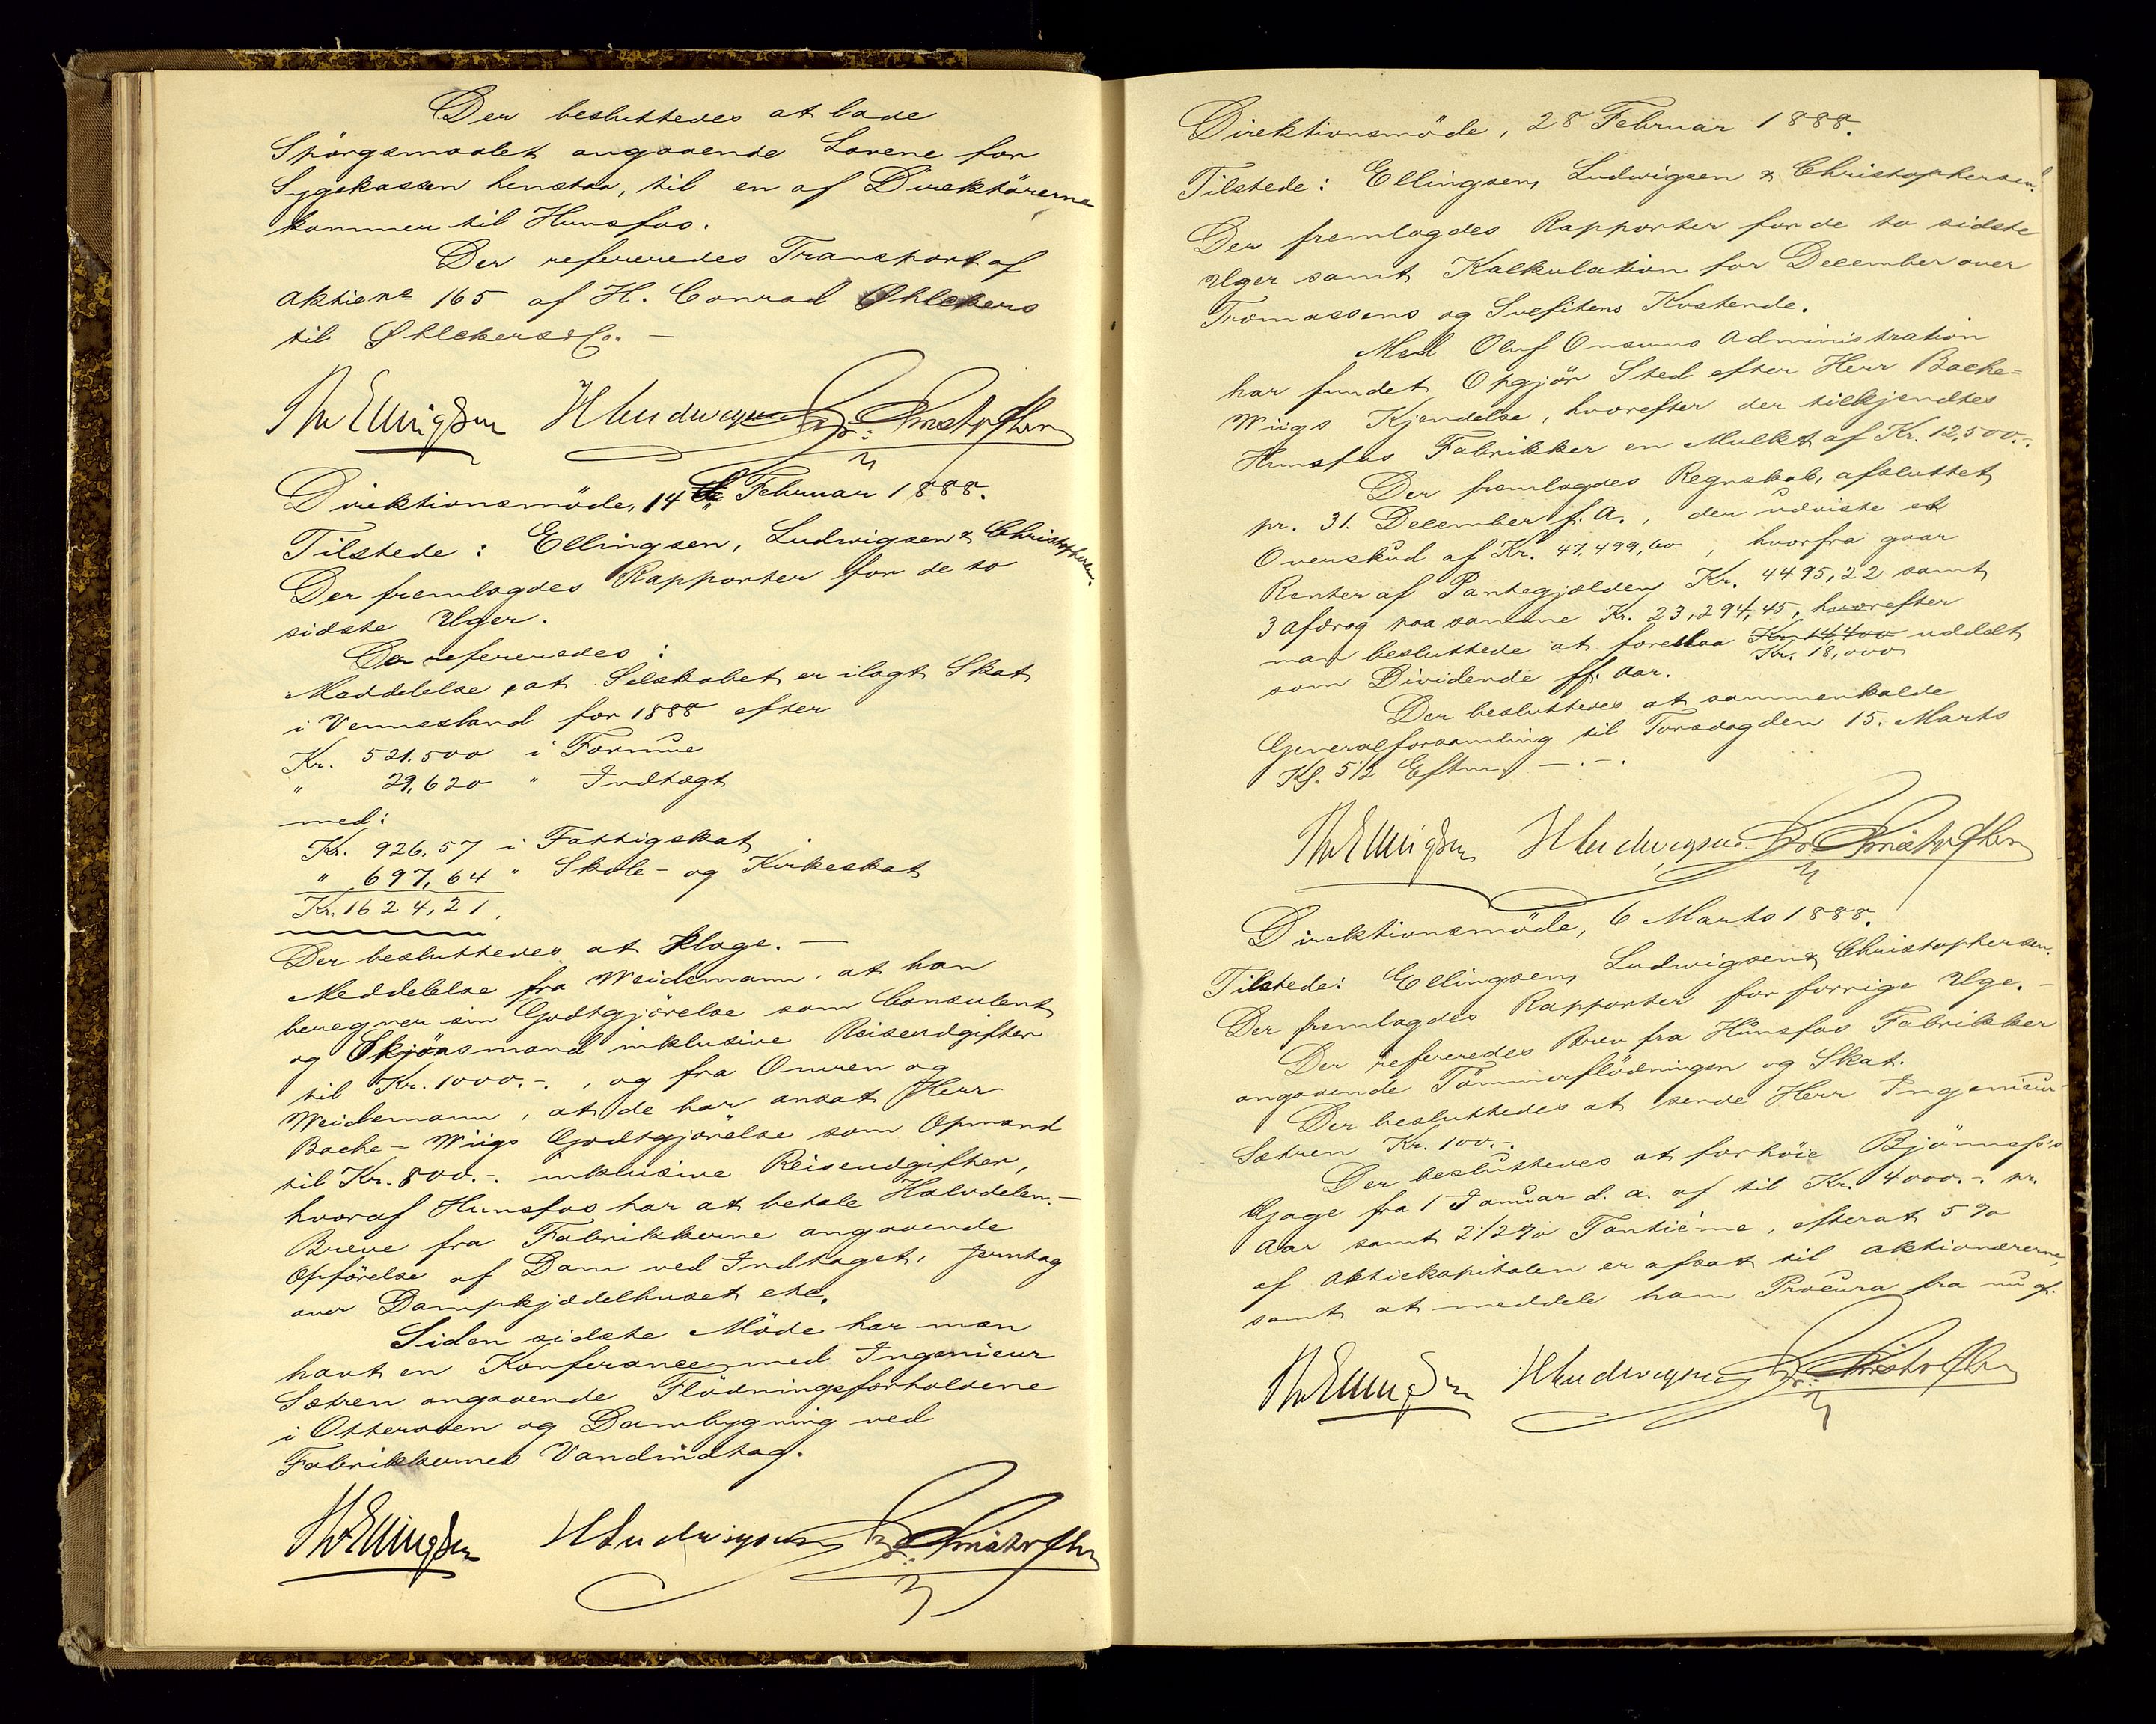 Der besluttedes at lade
Spörgsmaalet angaaende Lovene for
Sygekassen henstaa, til en af Direktörerne
kommer til Hunsfos.
Der refereredes Transport af
Aktie No 165 af H. Conrad Øhlckers
til Øhlckers & Co. —
Th Ellingsen HLudwigsen Chr. Christophersen
Direktionsmöde, 14 Februar 1888.
Tilstede: Ellingsen, Ludwigsen & Christophersen.
Der fremlagdes Rapporter for de to
sidste Uger.
Der refereredes:
Meddelelse, at Selskabet er ilagt Skat
i Vennesland for 1888 efter
Kr. 521.500 i Formue
" 29,620 " Indtægt
med:
Kr. 926,57 i Fattigskat
" 697,64 " Skole- og Kirkeskat
Kr. 1624,21.
Der besluttedes at klage. —
Meddelelse fra Weidemann, at han
beregner sin Godtgjörelse som Consulent
og Skjönsmand inklusive Reiseudgifter
til Kr. 1000.-, og fra Onuren og
Weidemann, at de har ansat Herr
Bache-Wiigs Godtgjörelse som Opmand
til Kr. 800.- inklusive Reiseudgifter,
hvoraf Hunsfos har at betale Halvdelen. —
Breve fra Fabrikkerne angaaende
Opförelse af Dam ved Indtaget, Jerntag
over Dampkjædelhuset etc.
Siden sidste Möde har man
havt en Konferance med Ingenieur
Sætren angaaende Flödningsforholdene
i Otteraaen og Dambygning ved
Fabrikkernes Vandindtag.
Th Ellingsen HLudwigsen Chr. Christophersen
Direktionsmöde, 28 Februar 1888.
Tilstede: Ellingsen, Ludwigsen & Christophersen.
Der fremlagdes Rapporter for de to sidste
Uger samt Kalkulation for December over
Træmassens og Sulfitens Kostende.
Med Oluf Onsums Administration
har fundet Opgjör Sted efter Herr Bache-
Wiigs Kjendelse, hvorefter der tilkjendtes
Hunsfos Fabrikker en Mulkt af Kr. 12,500.-.
Der fremlagdes Regnskab, afsluttet
pr. 31. December f. A., der udviste et
Overskud af Kr. 47,499,60, hvorfra gaar
Renter af Pantegjælden Kr. 4495,22 samt
3 Afdrag paa samme Kr. 23,294,45, hvorefter
man besluttede at foreslaa Kr. 14,400 uddelt
Kr. 18,000
som Dividende ff. Aar.
Der besluttedes at sammenkalde
Generalforsamling til Torsdag den 15. Marts
Kl. 5 1/2 Eftm. —.—.
Th Ellingsen HLudwigsen Chr. Christophersen
Direktionsmöde, 6 Marts 1888.
Tilstede: Ellingsen, Ludwigsen & Christophersen.
Der fremlagdes Rapporter for forrige Uge. —
Der refereredes Brev fra Hunsfos Fabrikker
angaaende Tömmerflödningen og Skat.
Der besluttedes at sende Herr Ingenieur
Sætren Kr. 100.-.
Der besluttedes at forhöie Bjönness's
Gage fra 1 Januar d. a. af til Kr. 4000.-. pr.
Aar samt 2 1/2 % Tantième, efterat 5 %
af Aktiekapitalen er afsat til Aktionærerne,
samt at meddele ham Procura fra nu af.
Th Ellingsen HLudwigsen Chr. Christophersen